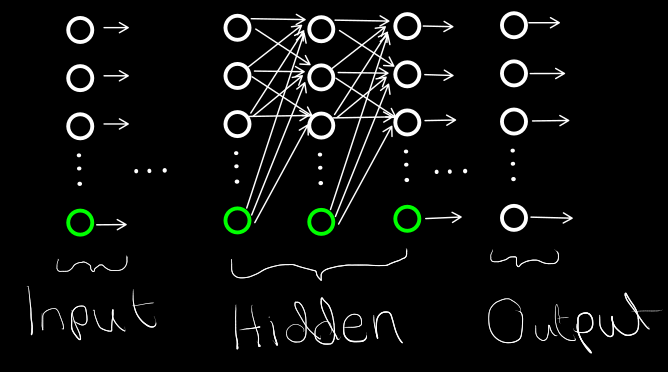 Input Hidden Output